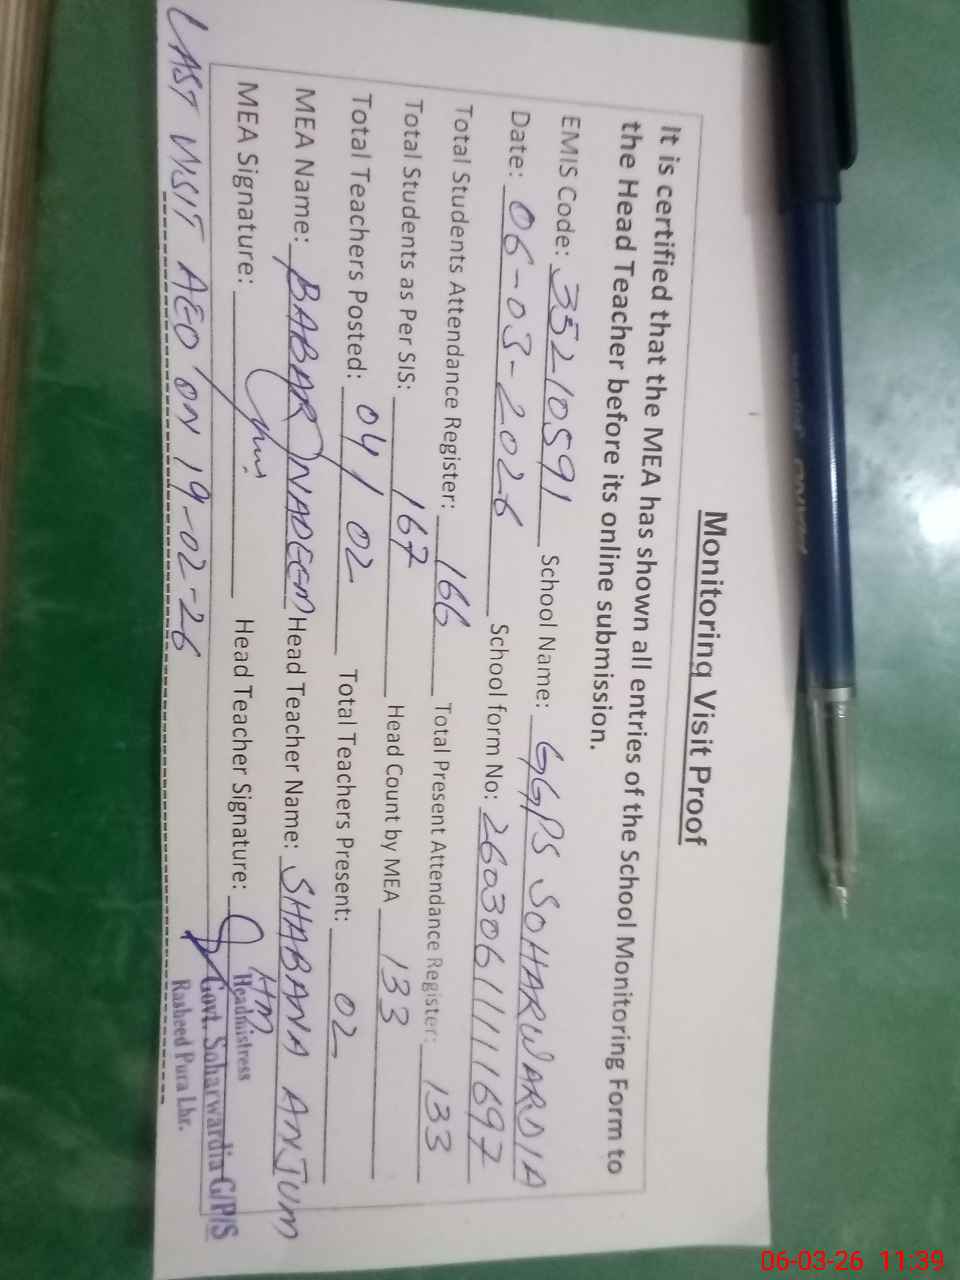 Monitoring Visit Proof
It is certified that the MEA has shown all entries of the School Monitoring Form to
the Head Teacher before its online submission.
EMIS Code: 35210591 School Name: GGPS SOHARWARDIA
Date: 06-03-2026 School form No: 2603061111697
Total Students Attendance Register: 166 Total Present Attendance Register: 133
Total Students as Per SIS: 167 Head Count by MEA 133
Total Teachers Posted: 04/02 Total Teachers Present: 02
MEA Name: BABAR NADEEM Head Teacher Name: SHABANA ANJUM
MEA Signature: Head Teacher Signature: HM
Headmistress
Govt. Soharwardia G/P/S
Rasheed Pura Lhr.
LAST VISIT AEO ON 19-02-26
06-03-26 11:39